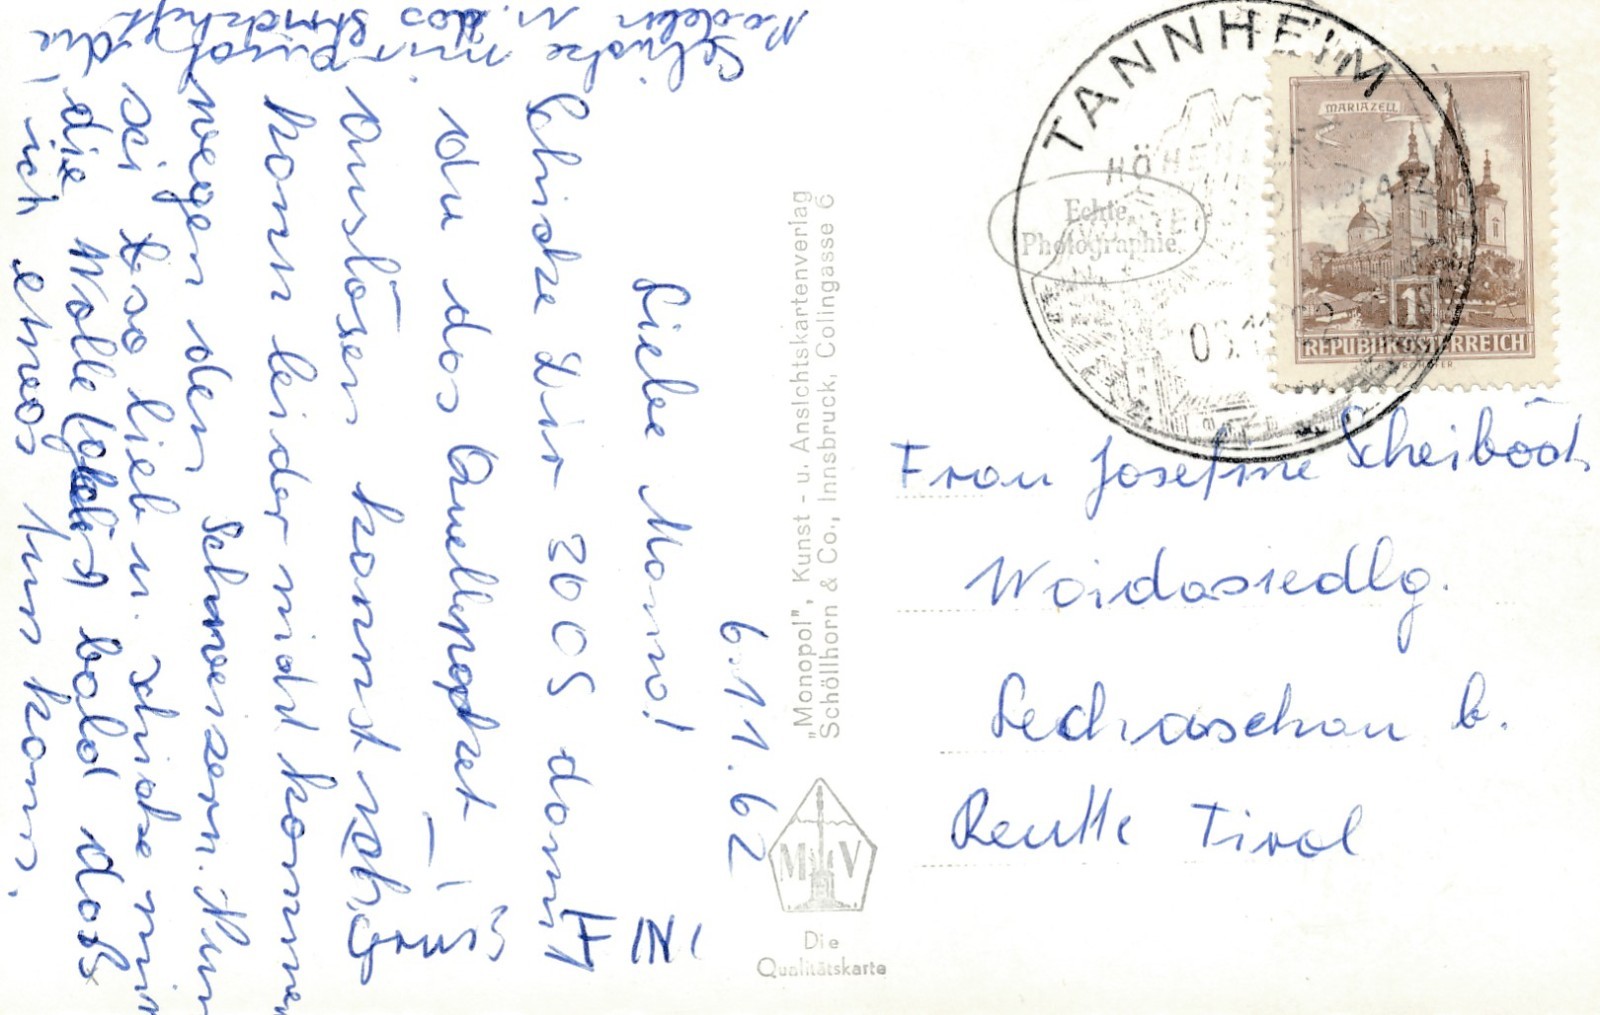 6.11.62
Liebe Mama!
Schicke Dir 200S damit
du das Quellepacket
auslösen kannst, habe
kann leider nicht kommen
wegen den Schweizern. Nun
sei so lieb u. schicke mir
die Wolle bald dass
ich etwas tun kann.
Schicke mir auch die
Nadeln u. das Strickheft
Gruß
FINI
"Monopol", Kunst- u. Ansichtskartenverlag
Schöllhorn & Co., Innsbruck, Colingasse 6
M V
Die
Qualitätskarte
Echte
Photographie
TANNHEIM
MARIAZELL
1S
REPUBLIK ÖSTERREICH
Frau Josefine Scheiböck
Waidasiedlg.
Lechaschau b.
Reutte Tirol